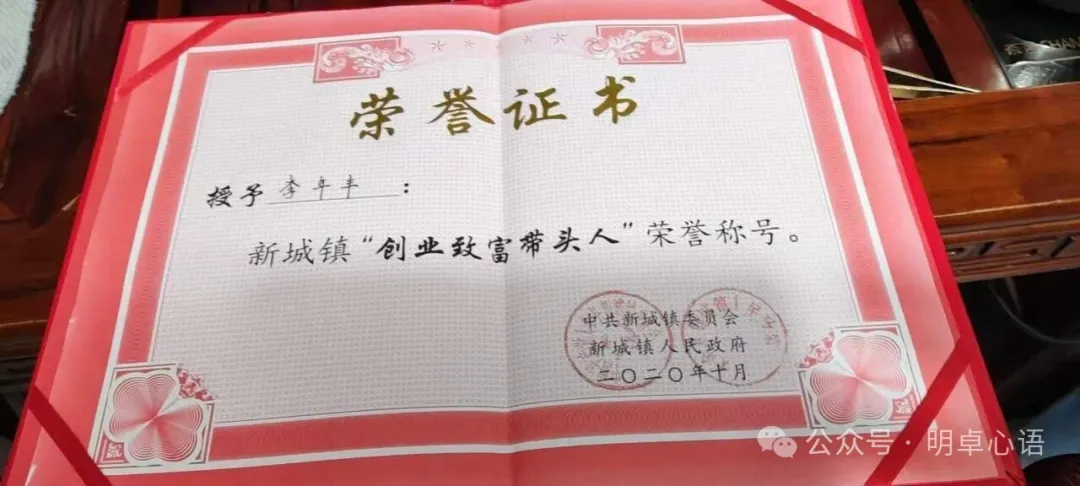 荣誉证书
授予李年丰：
新城镇“创业致富带头人”荣誉称号。
中共新城镇委员会
新城镇人民政府
二〇二〇年十月
公众号·明卓心语